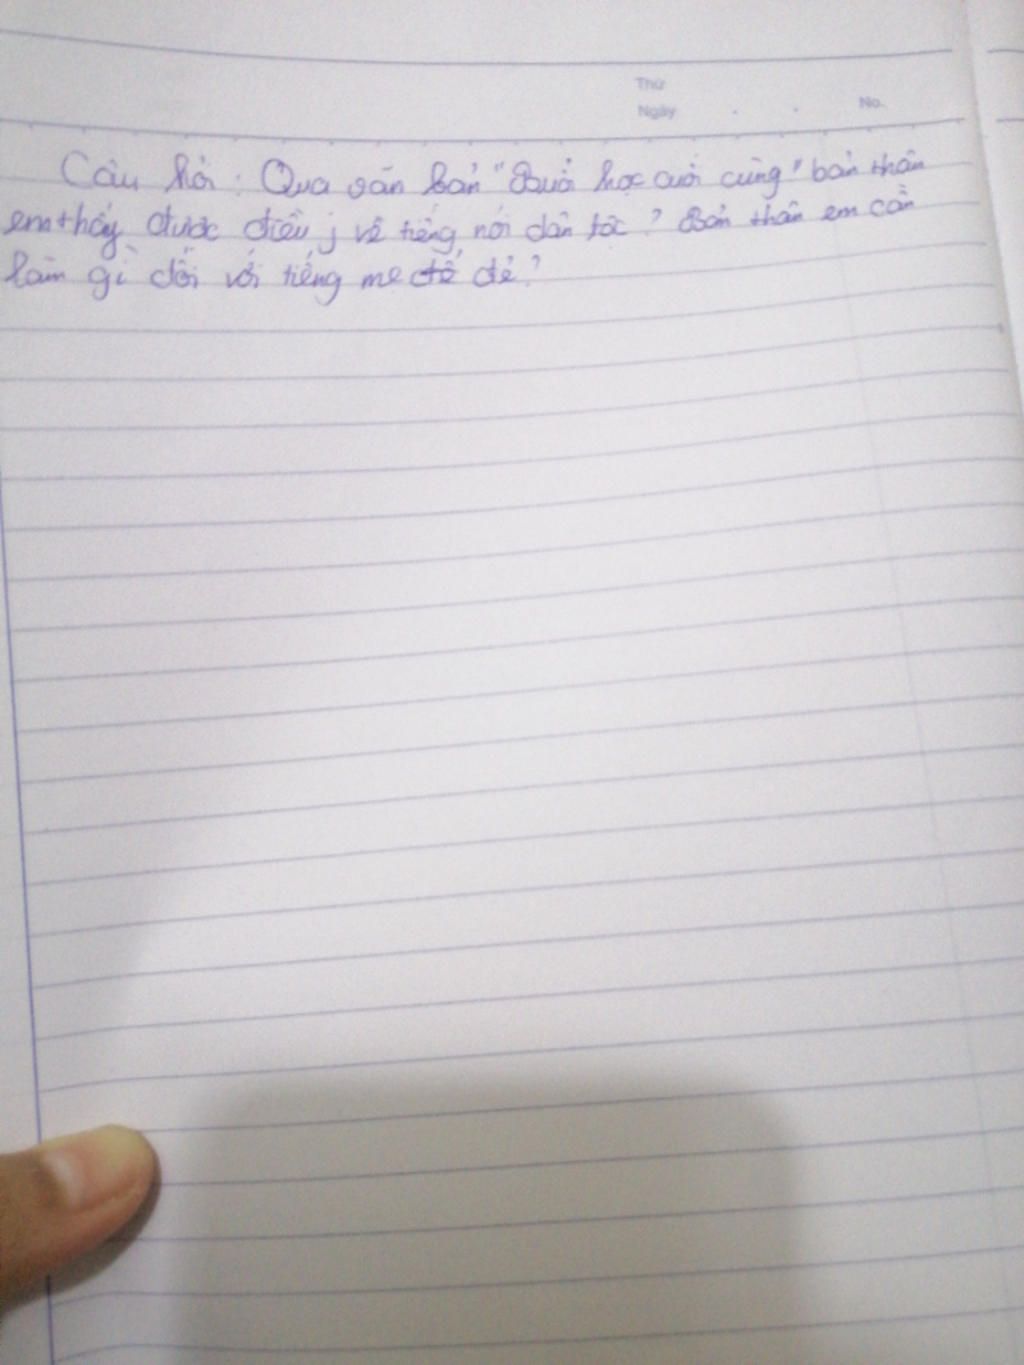 Thứ
Ngày . . No.
Câu hỏi : Qua văn bản "Buổi học cuối cùng" bản thân
em thấy được điều j về tiếng nói dân tộc ? Bản thân em cần
làm gì đối với tiếng mẹ đẻ ?